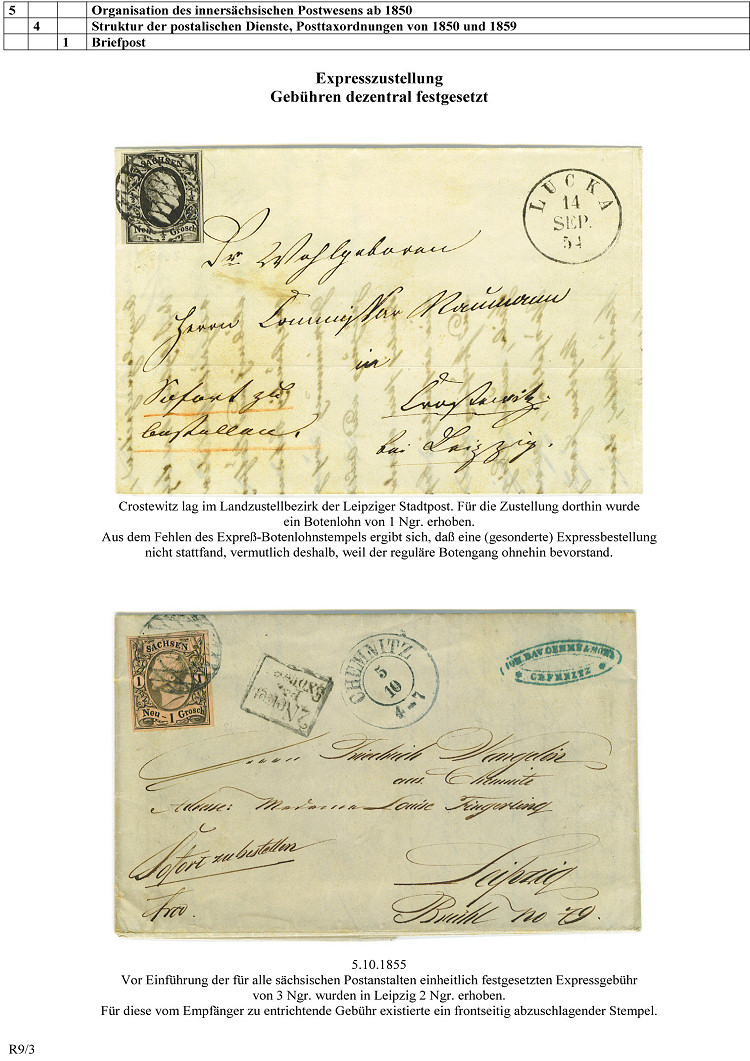 5 Organisation des innersächsischen Postwesens ab 1850
4 Struktur der postalischen Dienste, Posttaxordnungen von 1850 und 1859
1 Briefpost
Expresszustellung
Gebühren dezentral festgesetzt
SACHSEN
Neu- ½ Grosch
LUCKA
14
SEP.
54
Sr. Wohlgeboren
Herrn Commissar Naumann
in
Sofort zu
bestellen.
Crostewitz.
bei Leipzig.
Crostewitz lag im Landzustellbezirk der Leipziger Stadtpost. Für die Zustellung dorthin wurde
ein Botenlohn von 1 Ngr. erhoben.
Aus dem Fehlen des Expreß-Botenlohnstempels ergibt sich, daß eine (gesonderte) Expressbestellung
nicht stattfand, vermutlich deshalb, weil der reguläre Botengang ohnehin bevorstand.
SACHSEN
1 1
Neu – 1 Grosch
CHEMNITZ
5
10
4–7
JOH. DAV. OEHME & SÖHNE
CHEMNITZ
Herrn Friedrich
aus Chemnitz
Adresse: Madame Louise Fingerling
Sofort zu bestellen
Leipzig
fro.
Brühl no 79.
5.10.1855
Vor Einführung der für alle sächsischen Postanstalten einheitlich festgesetzten Expressgebühr
von 3 Ngr. wurden in Leipzig 2 Ngr. erhoben.
Für diese vom Empfänger zu entrichtende Gebühr existierte ein frontseitig abzuschlagender Stempel.
R9/3